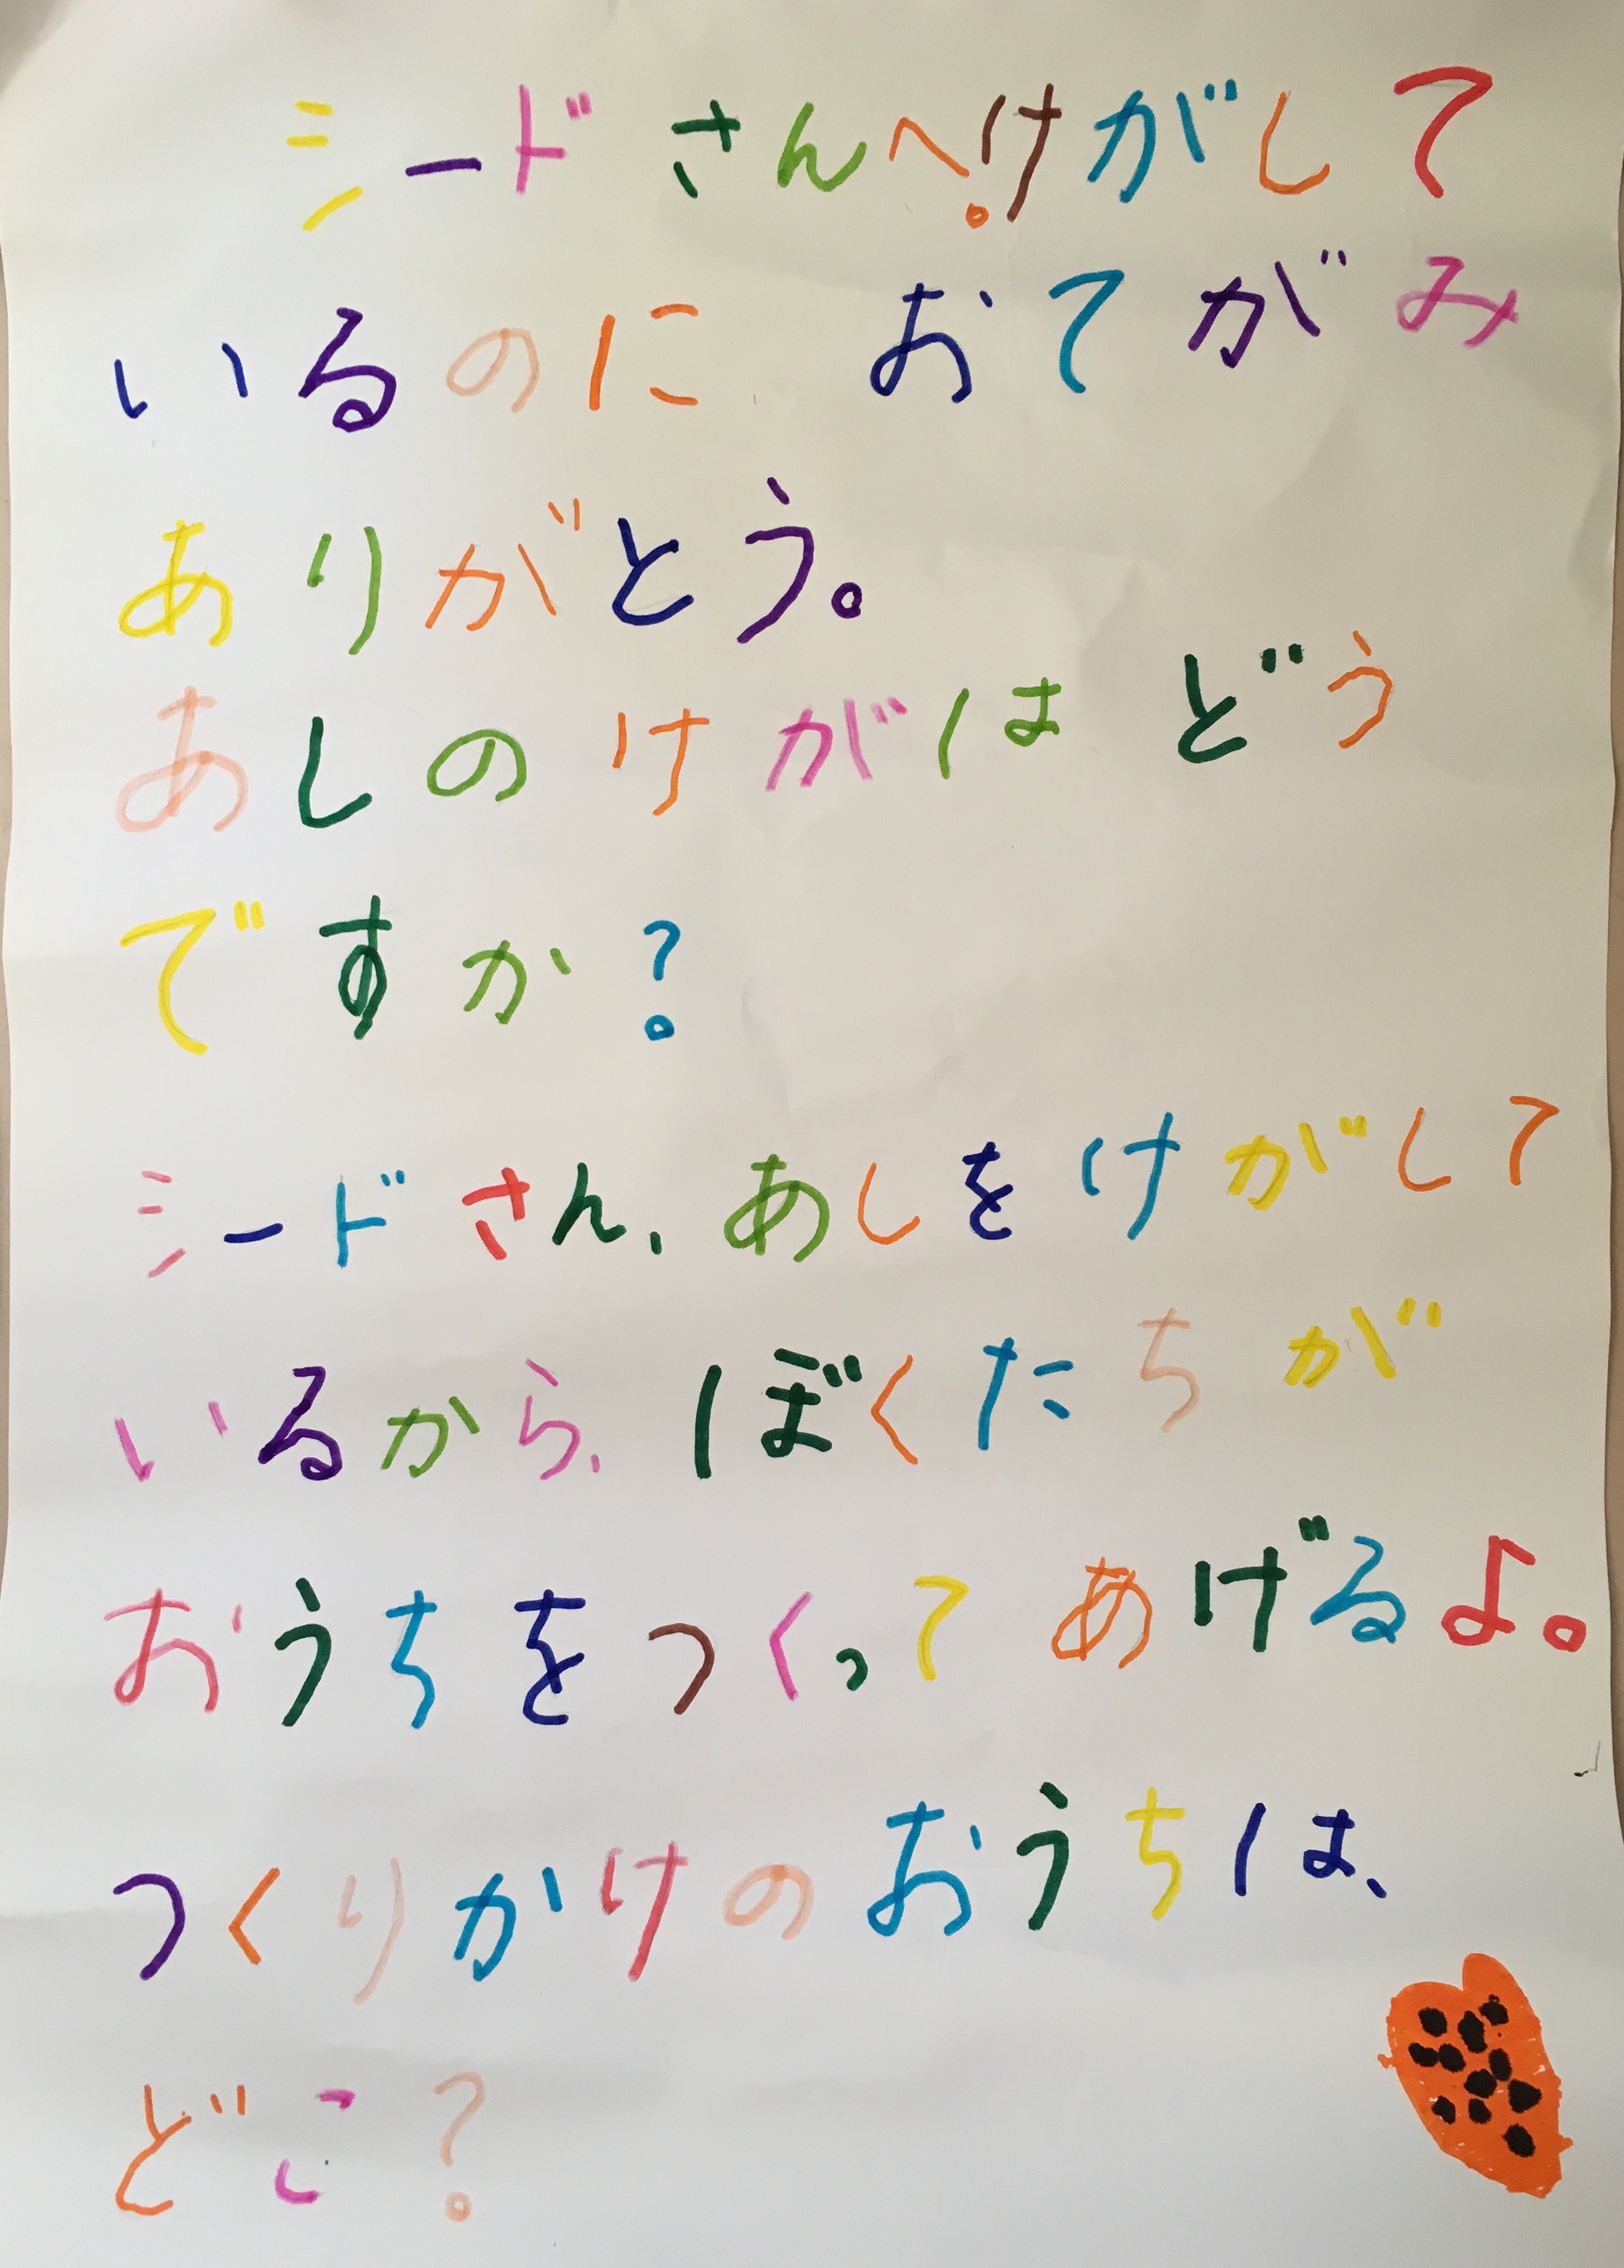 シードさんへ。けがして
いるのに おてがみ
ありがとう。
あしのけがは どう
ですか?
シードさん、あしをけがして
いるから、ぼくたちが
おうちをつくって あげるよ。
つくりかけのおうちは、
どこ?